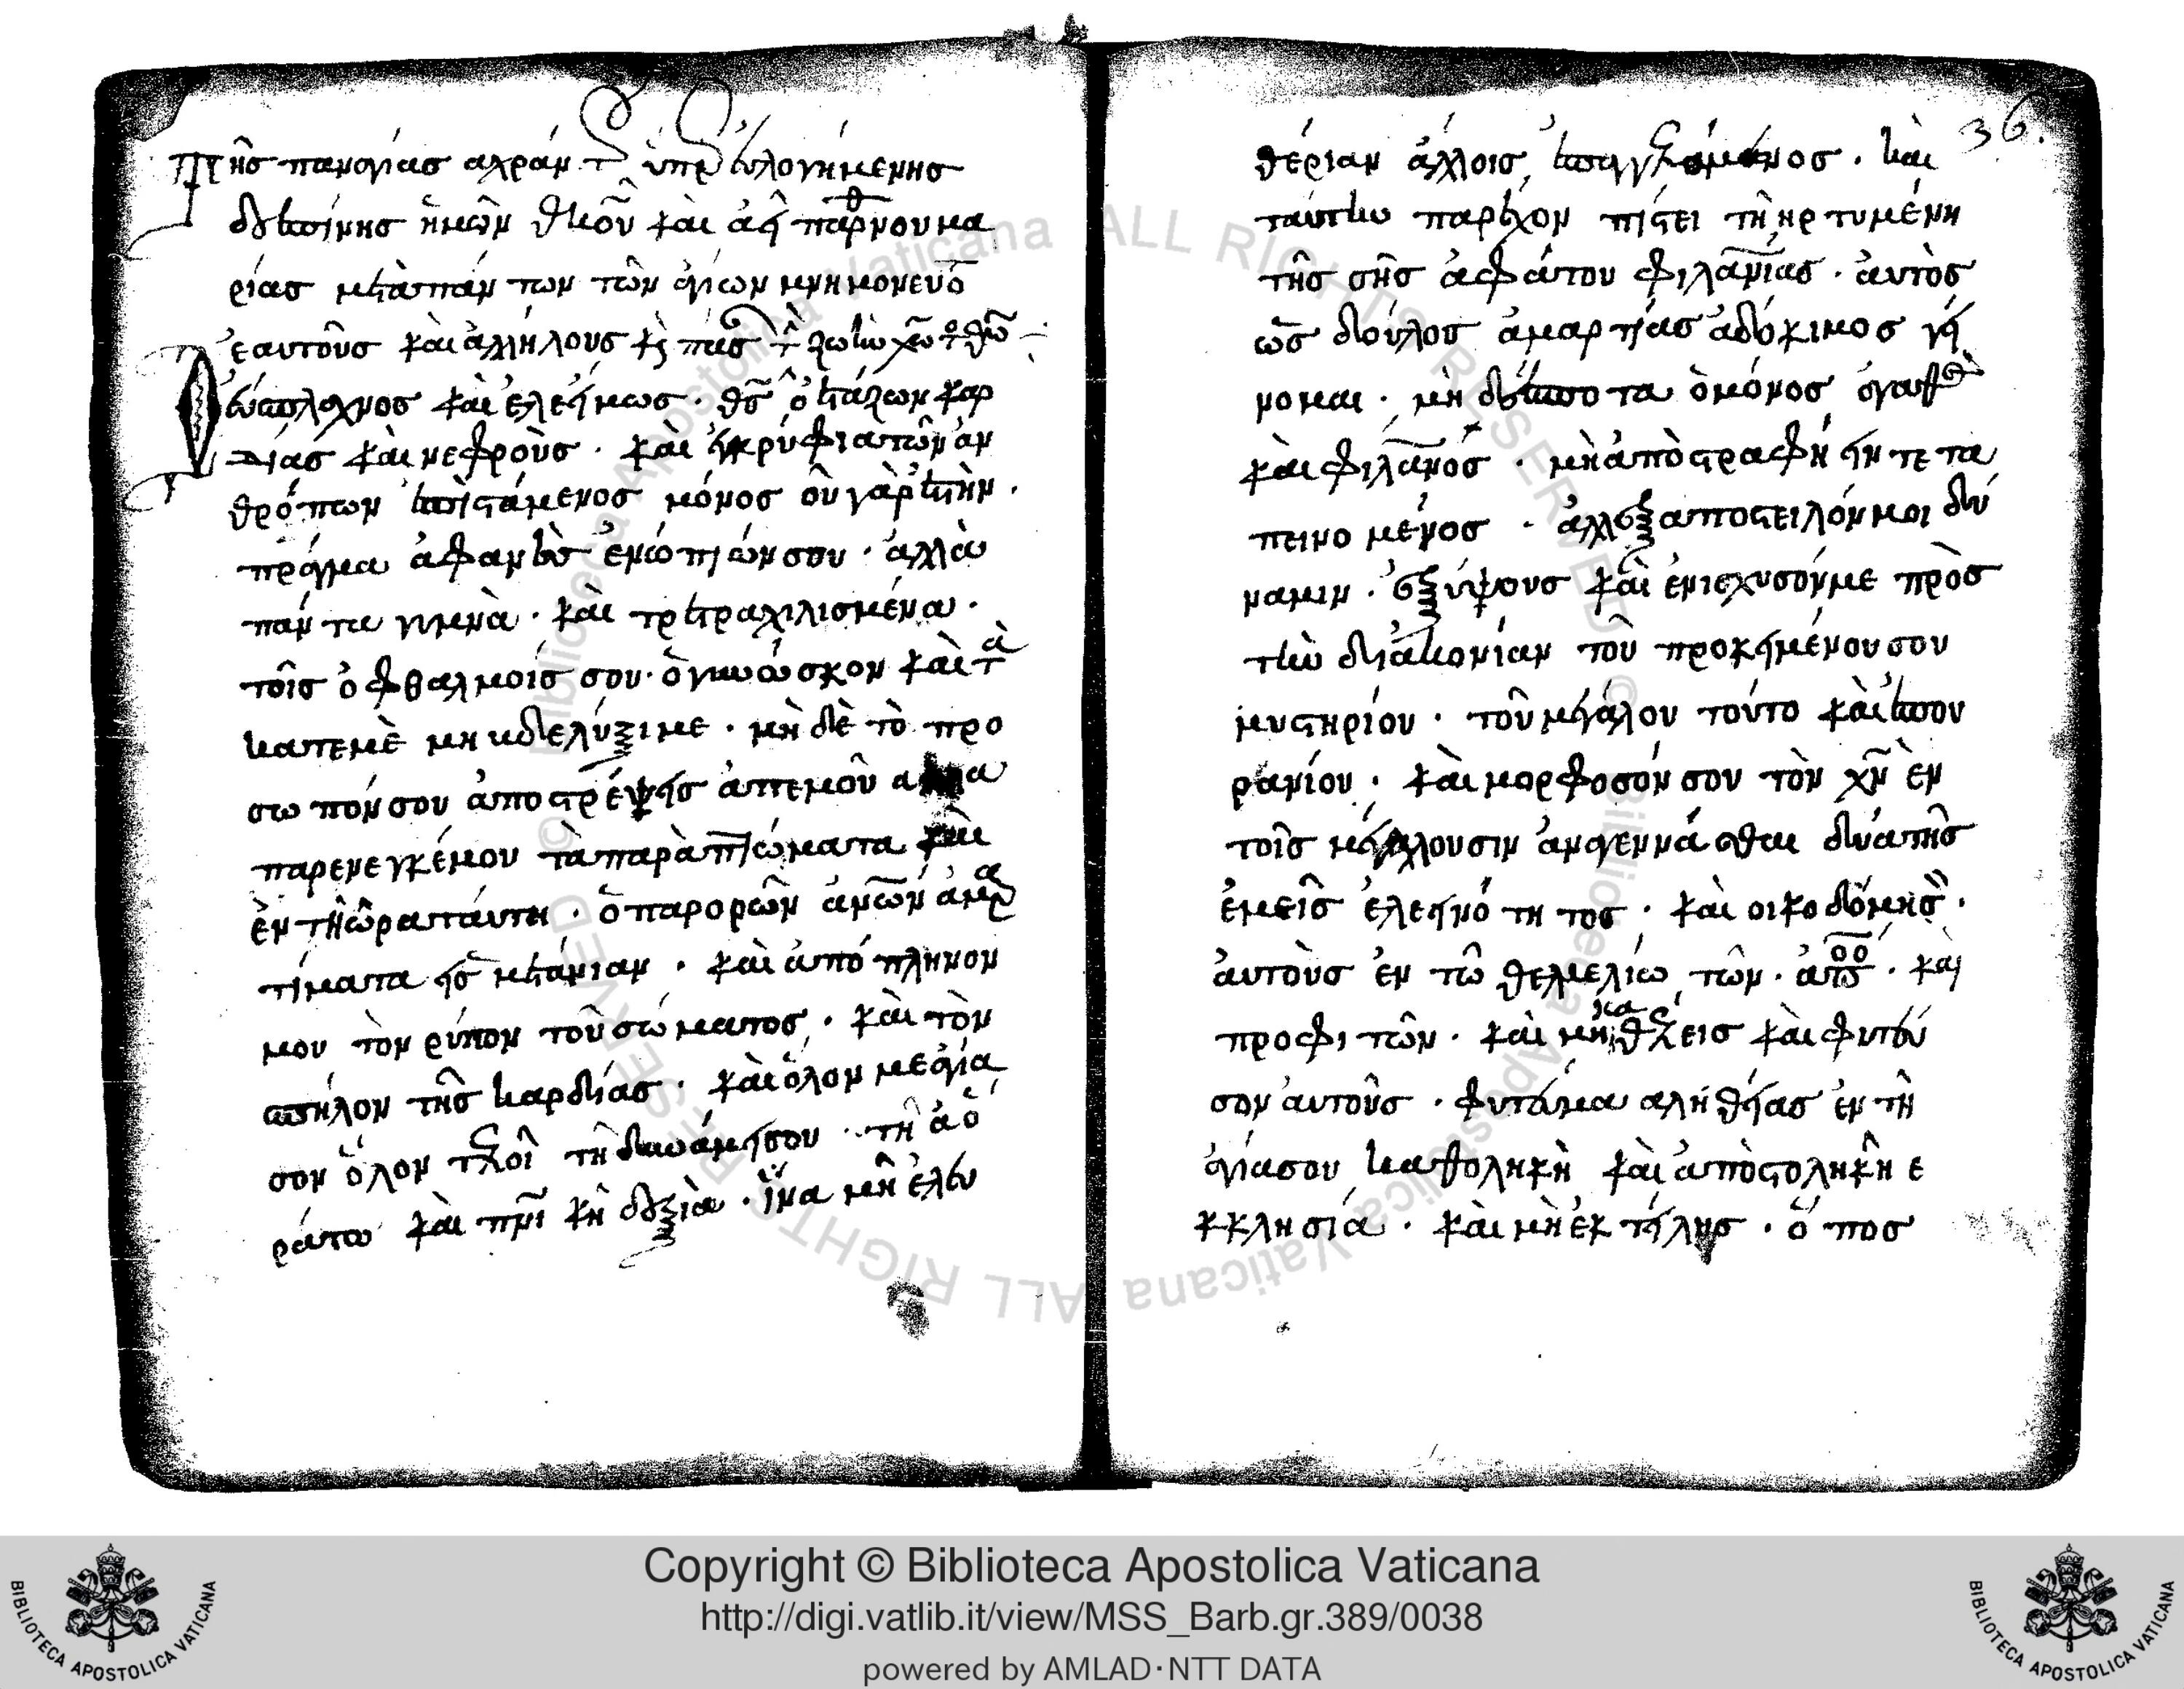 Τῆς παναγίας αχράν τ ὑπὲρ ευλογημένης
δεσπίνης ἡμῶν θκου καὶ ἀει παρθνου μα
ρίας μετὰ πάν των τῶν ἁγίων μνημονευο
ἑαυτοῦς καὶ ἀλλήλους κς πασ τ ζωὴν χω τ θω
εὔσπλαχνος καὶ ἐλεήμως · θς ὁ ετάζων καρ
δίας καὶ νεφροὺς · καὶ κρύφια τῶν αν
θρόπων ἐπιστάμενος μόνος οὐ γὰρ ἐστὴν ·
πράγμα ἀφανὲς ἐνώπιών σου · ἀλλὰ
πάν τα γυμνὰ · καὶ τρετραχιλισμένα ·
τοῖς ὀφθαλμοίς σου · ὁ γινώσκον καὶ τὰ
κατεμὲ μη κδελύξιμε · μὴ δὲ τὸ προ
σω πόν σου ἀποστρέψεις ἀπεμοῦ
παρενεγκέμου τὰ παρὰπτώματα καὶ
ἐν τῆ ὥρα ταύτη · ὁ παρορῶν ἀνων ἁμαρ
τίματα εἰς μετάνιαν · καὶ ἀπό πληνον
μου τὸν ρύπον τοῦ σώματος · καὶ τὸν
σπήλον τῆς καρδίας · καὶ ὅλον με ἁγία
σον ὅλον τελοί τὴ δυνάμει σου · τὴ ἀὸ
ράτω καὶ πνι κὴ δεξιὰ · ἵνα μὴ ἐλευ
36.
θέριαν άλλοις ἐπαγγελόμενος · καὶ
ταύτην παρέχον πίστει τῆ ηρτυμένη
τῆς σῆς ἀφάτου φιλανίας · ἀυτὸς
ὡς δούλος ἁμαρτίας ἀδόκιμος γέ
νομαι · μὴ δέσποτα ὁ μόνος ἀγαθὸ
καὶ φιλανος · μὴ ἀπὸστραφή ην τε τα
πεινο μένος · ἀλλ ἐξαποστειλόν μοι δύ
ναμιν · ἐξ ὑψους καὶ ἐνισχυσόν με πρὸς
τὴν διακονίαν τοῦ προκημένου σου
μυστηρίου · τοῦ μεγάλου τούτο καὶ ἐπου
ρανίου · καὶ μορφοσόν σου τὸν χν ἐν
τοῖς μέλλουσιν ἀναγεννάσθαι διὰ τῆς
ἐμεῖς ἐλεηνό τη τος · καὶ οικοδόμησ ·
ἀυτοὺς ἐν τῶ θελμελίω τῶν · ἀπο · καὶ
προφι τῶν · καὶ μὴ καθέλεις καὶ φυτευ
σον αυτοῦς · φυτευμα αλήθείας ἐν τῆ
ἁγία σου καθοληκὴ καὶ ἀπὸστοληκῆ ε
κκλησία · καὶ μὴ ἐκ τήλης · ὅ πος
Copyright © Biblioteca Apostolica Vaticana
http://digi.vatlib.it/view/MSS_Barb.gr.389/0038
powered by AMLAD·NTT DATA
BIBLIOTECA APOSTOLICA VATICANA
BIBLIOTECA APOSTOLICA VATICANA